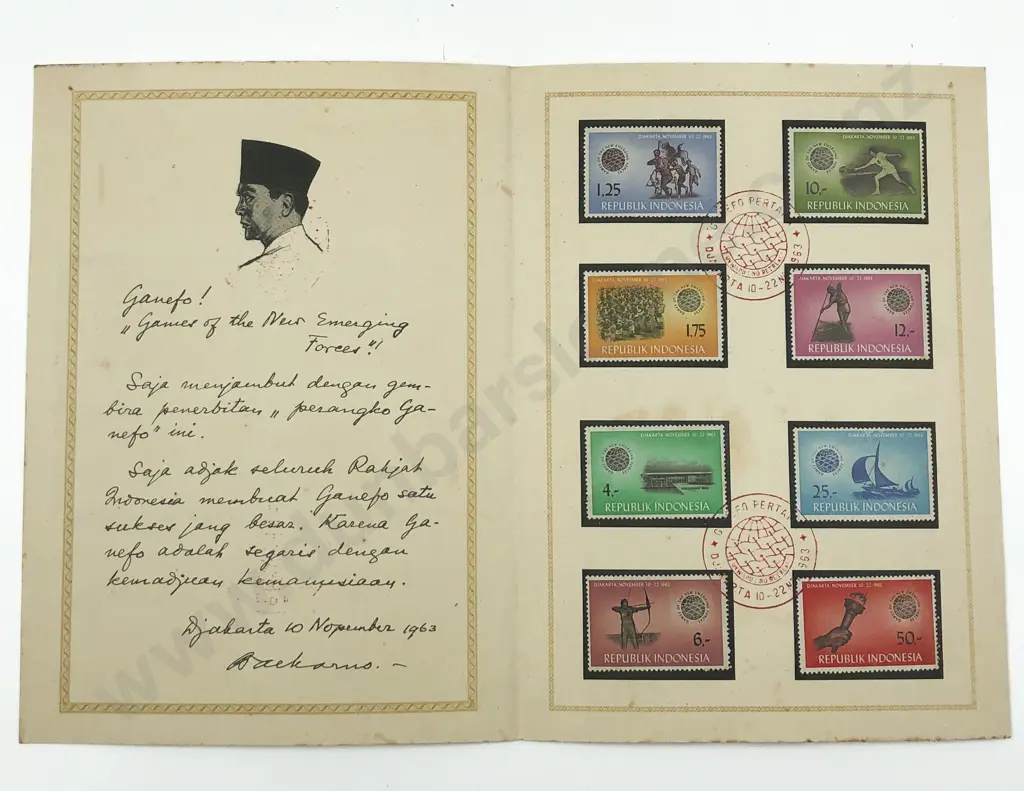 Ganefo!
„Games of the New Emerging
Forces"!
Saja menjambut dengan gem-
bira penerbitan „perangko Ga-
nefo" ini.
Saja adjak seluruh Rakjat
Indonesia membuat Ganefo satu
sukses jang besar. Karena Ga-
nefo adalah segaris dengan
kemadjuan kemanusiaan.
Djakarta 10 Nopember 1963
Soekarno.-
DJAKARTA NOVEMBER 10-22 1963
1,25
REPUBLIK INDONESIA
DJAKARTA NOVEMBER 10-22 1963
10,-
REPUBLIK INDONESIA
GANEFO PERTAMA
ONWARD! NO RETREAT
DJAKARTA 10-22 NOV 1963
DJAKARTA NOVEMBER 10-22 1963
1,75
REPUBLIK INDONESIA
DJAKARTA NOVEMBER 10-22 1963
12,-
REPUBLIK INDONESIA
DJAKARTA NOVEMBER 10-22 1963
4,-
REPUBLIK INDONESIA
DJAKARTA NOVEMBER 10-22 1963
25,-
REPUBLIK INDONESIA
GANEFO PERTAMA
ONWARD! NO RETREAT
DJAKARTA 10-22 NOV 1963
DJAKARTA NOVEMBER 10-22 1963
6,-
REPUBLIK INDONESIA
DJAKARTA NOVEMBER 10-22 1963
50,-
REPUBLIK INDONESIA